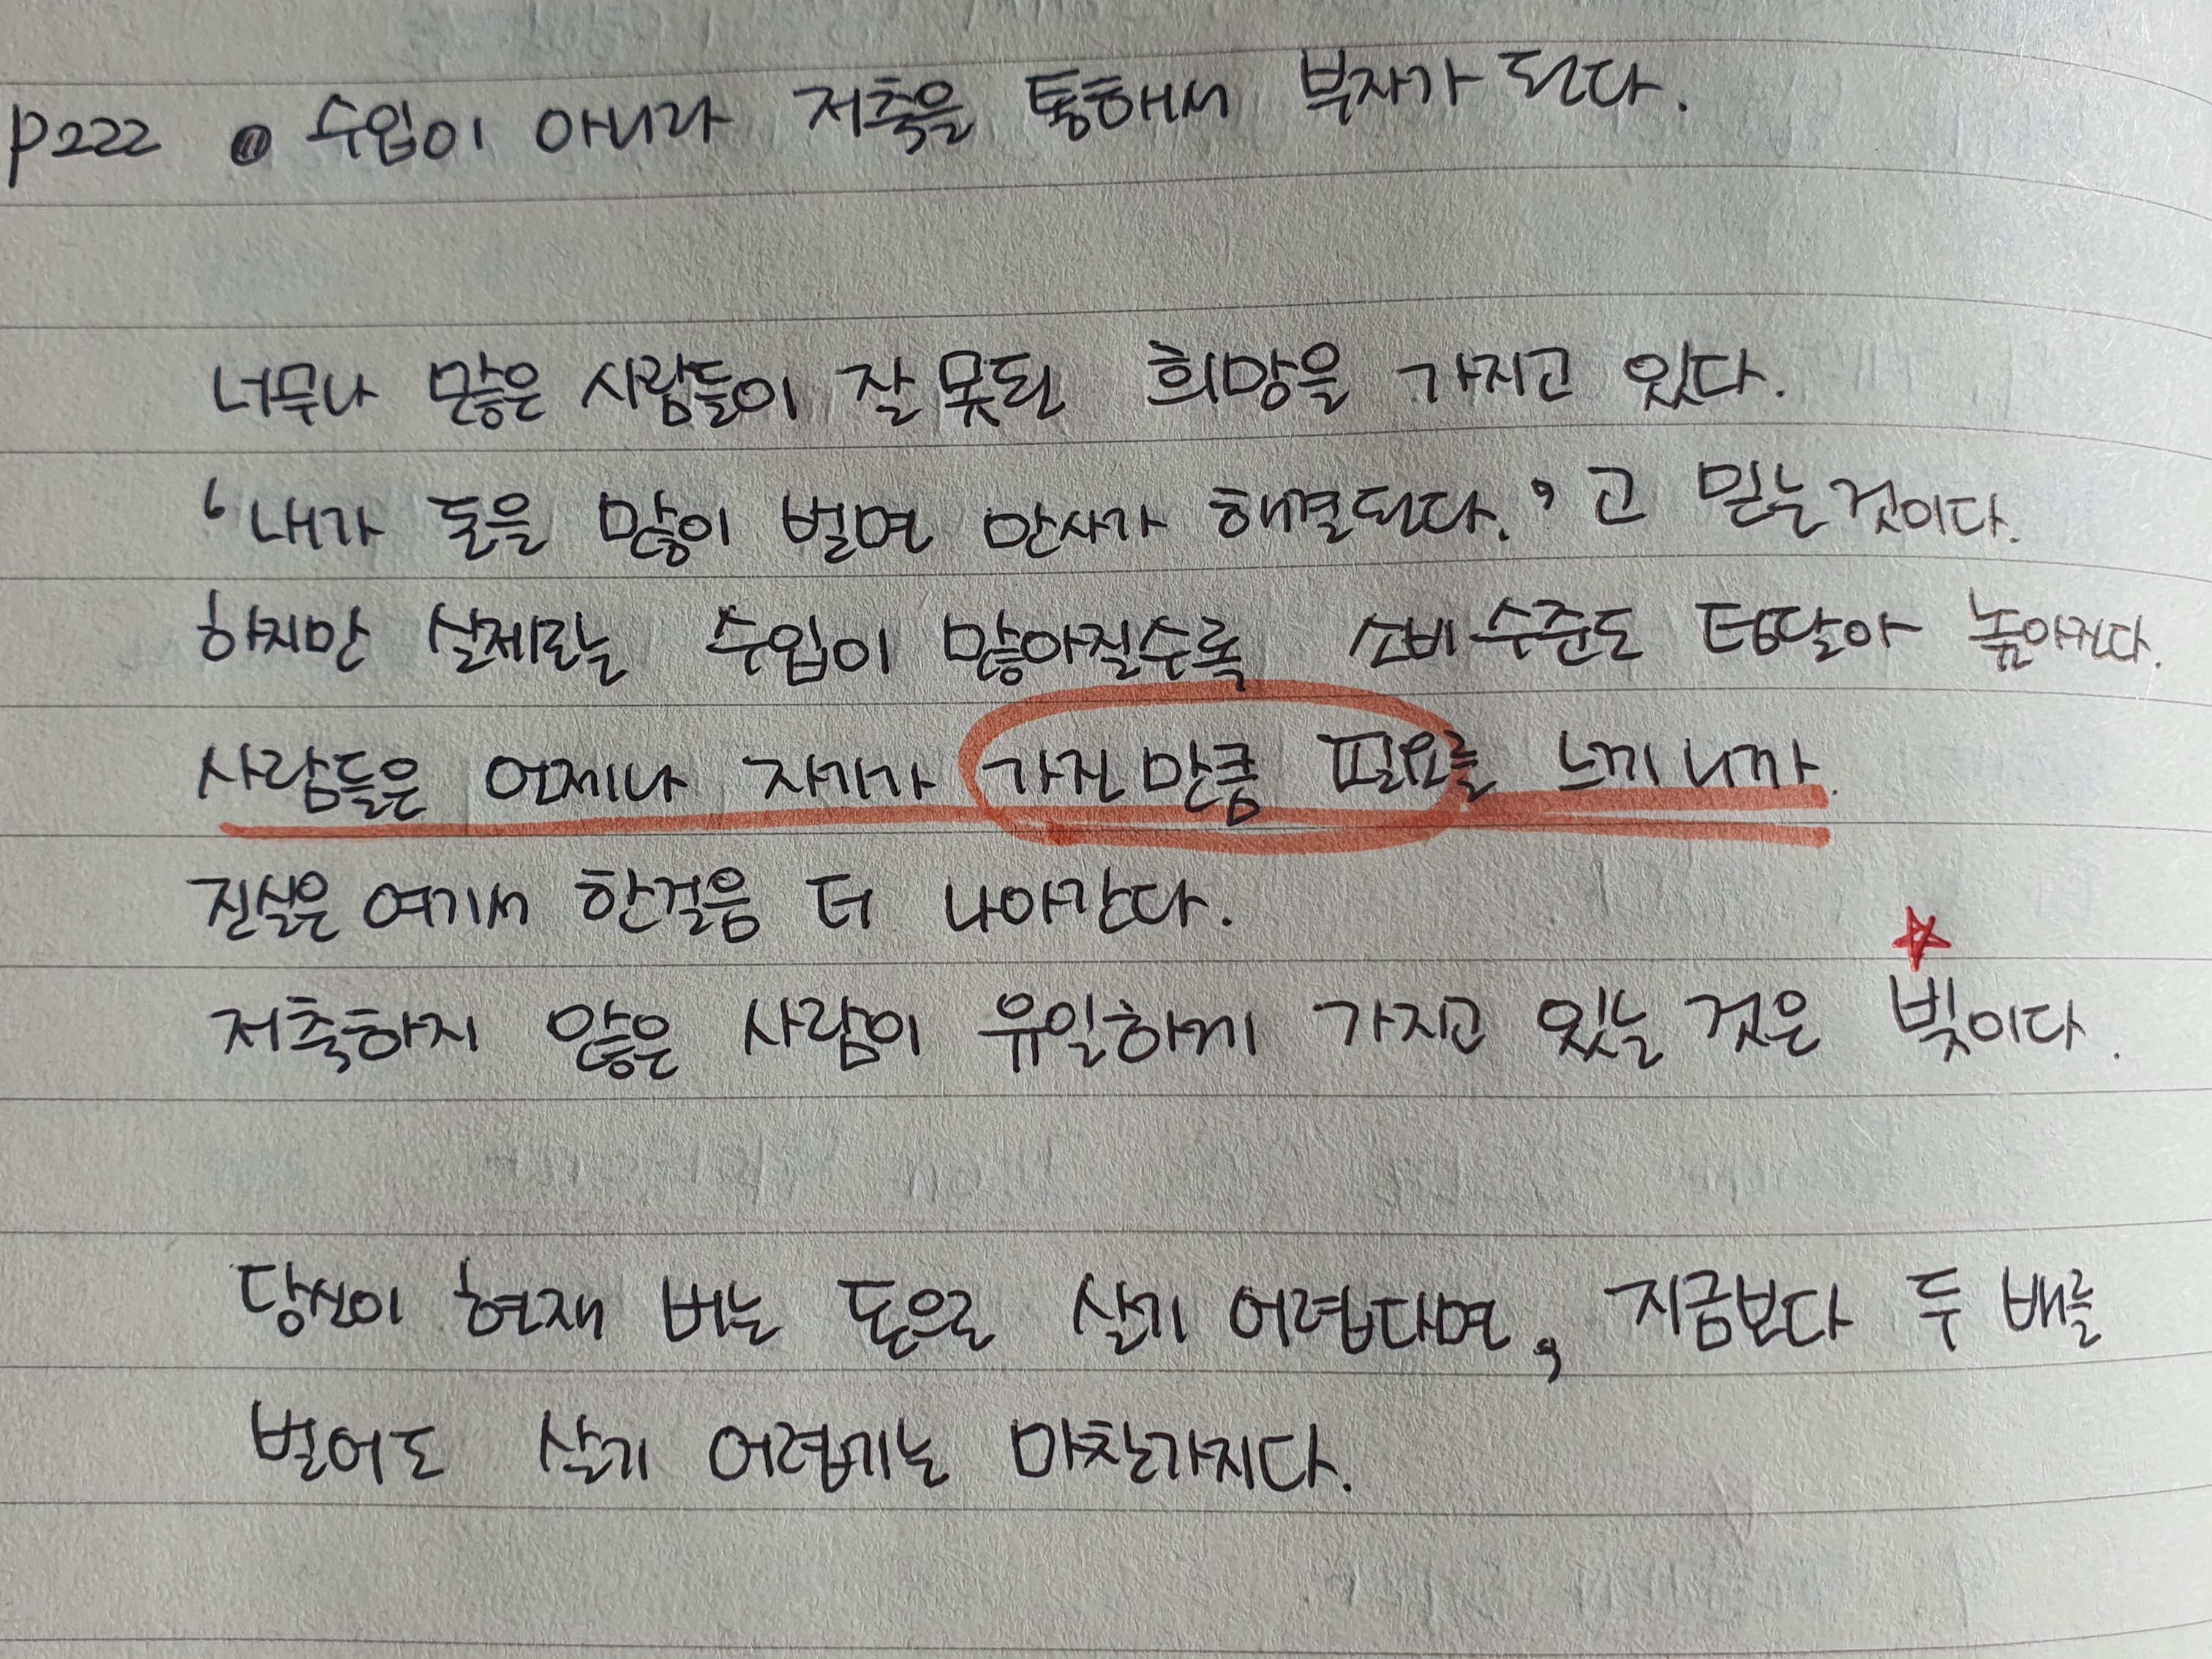 P222 ● 수입이 아니라 저축을 통해서 부자가 된다.
너무나 많은 사람들이 잘못된 희망을 가지고 있다.
'내가 돈을 많이 벌면 만사가 해결된다.'고 믿는 것이다.
하지만 실제로는 수입이 많아질수록 소비수준도 덩달아 높아진다.
사람들은 언제나 자기가 가진만큼 필요를 느끼니까.
진실은 여기서 한걸음 더 나아간다.
저축하지 않은 사람이 유일하게 가지고 있는 것은 빚이다.
당신이 현재 버는 돈으로 살기 어렵다면, 지금보다 두 배를
벌어도 살기 어렵기는 마찬가지다.